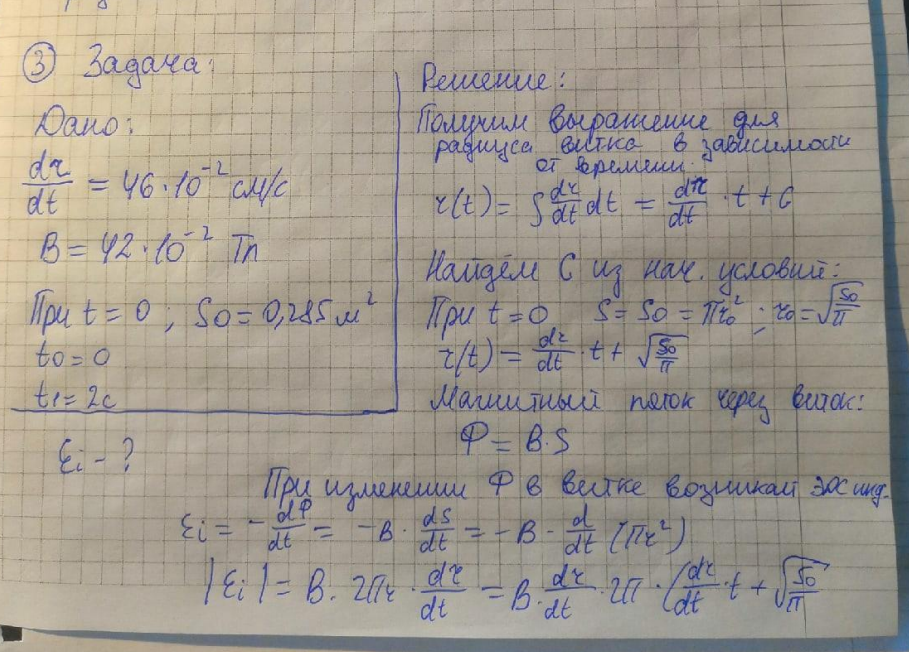 ③ Задача:
Дано:
dr/dt = 46·10⁻² см/с
B = 42·10⁻² Тл
При t = 0 ; S₀ = 0,285 м²
t₀ = 0
t₁ = 2с
εi - ?
Решение:
Получим выражение для
радиуса витка в зависимости
от времени.
r(t) = ∫ dr/dt dt = dr/dt · t + C
Найдём C из нач. условий:
При t = 0 S = S₀ = πr₀² ; r₀ = √(S₀/π)
r(t) = dr/dt · t + √(S₀/π)
Магнитный поток через виток:
Ф = B·S
При изменении Ф в витке возникает ЭДС инд.
εi = - dФ/dt = -B · dS/dt = -B · d/dt (πr²)
|εi| = B · 2πr · dr/dt = B · dr/dt · 2π · (dr/dt · t + √(S₀/π)